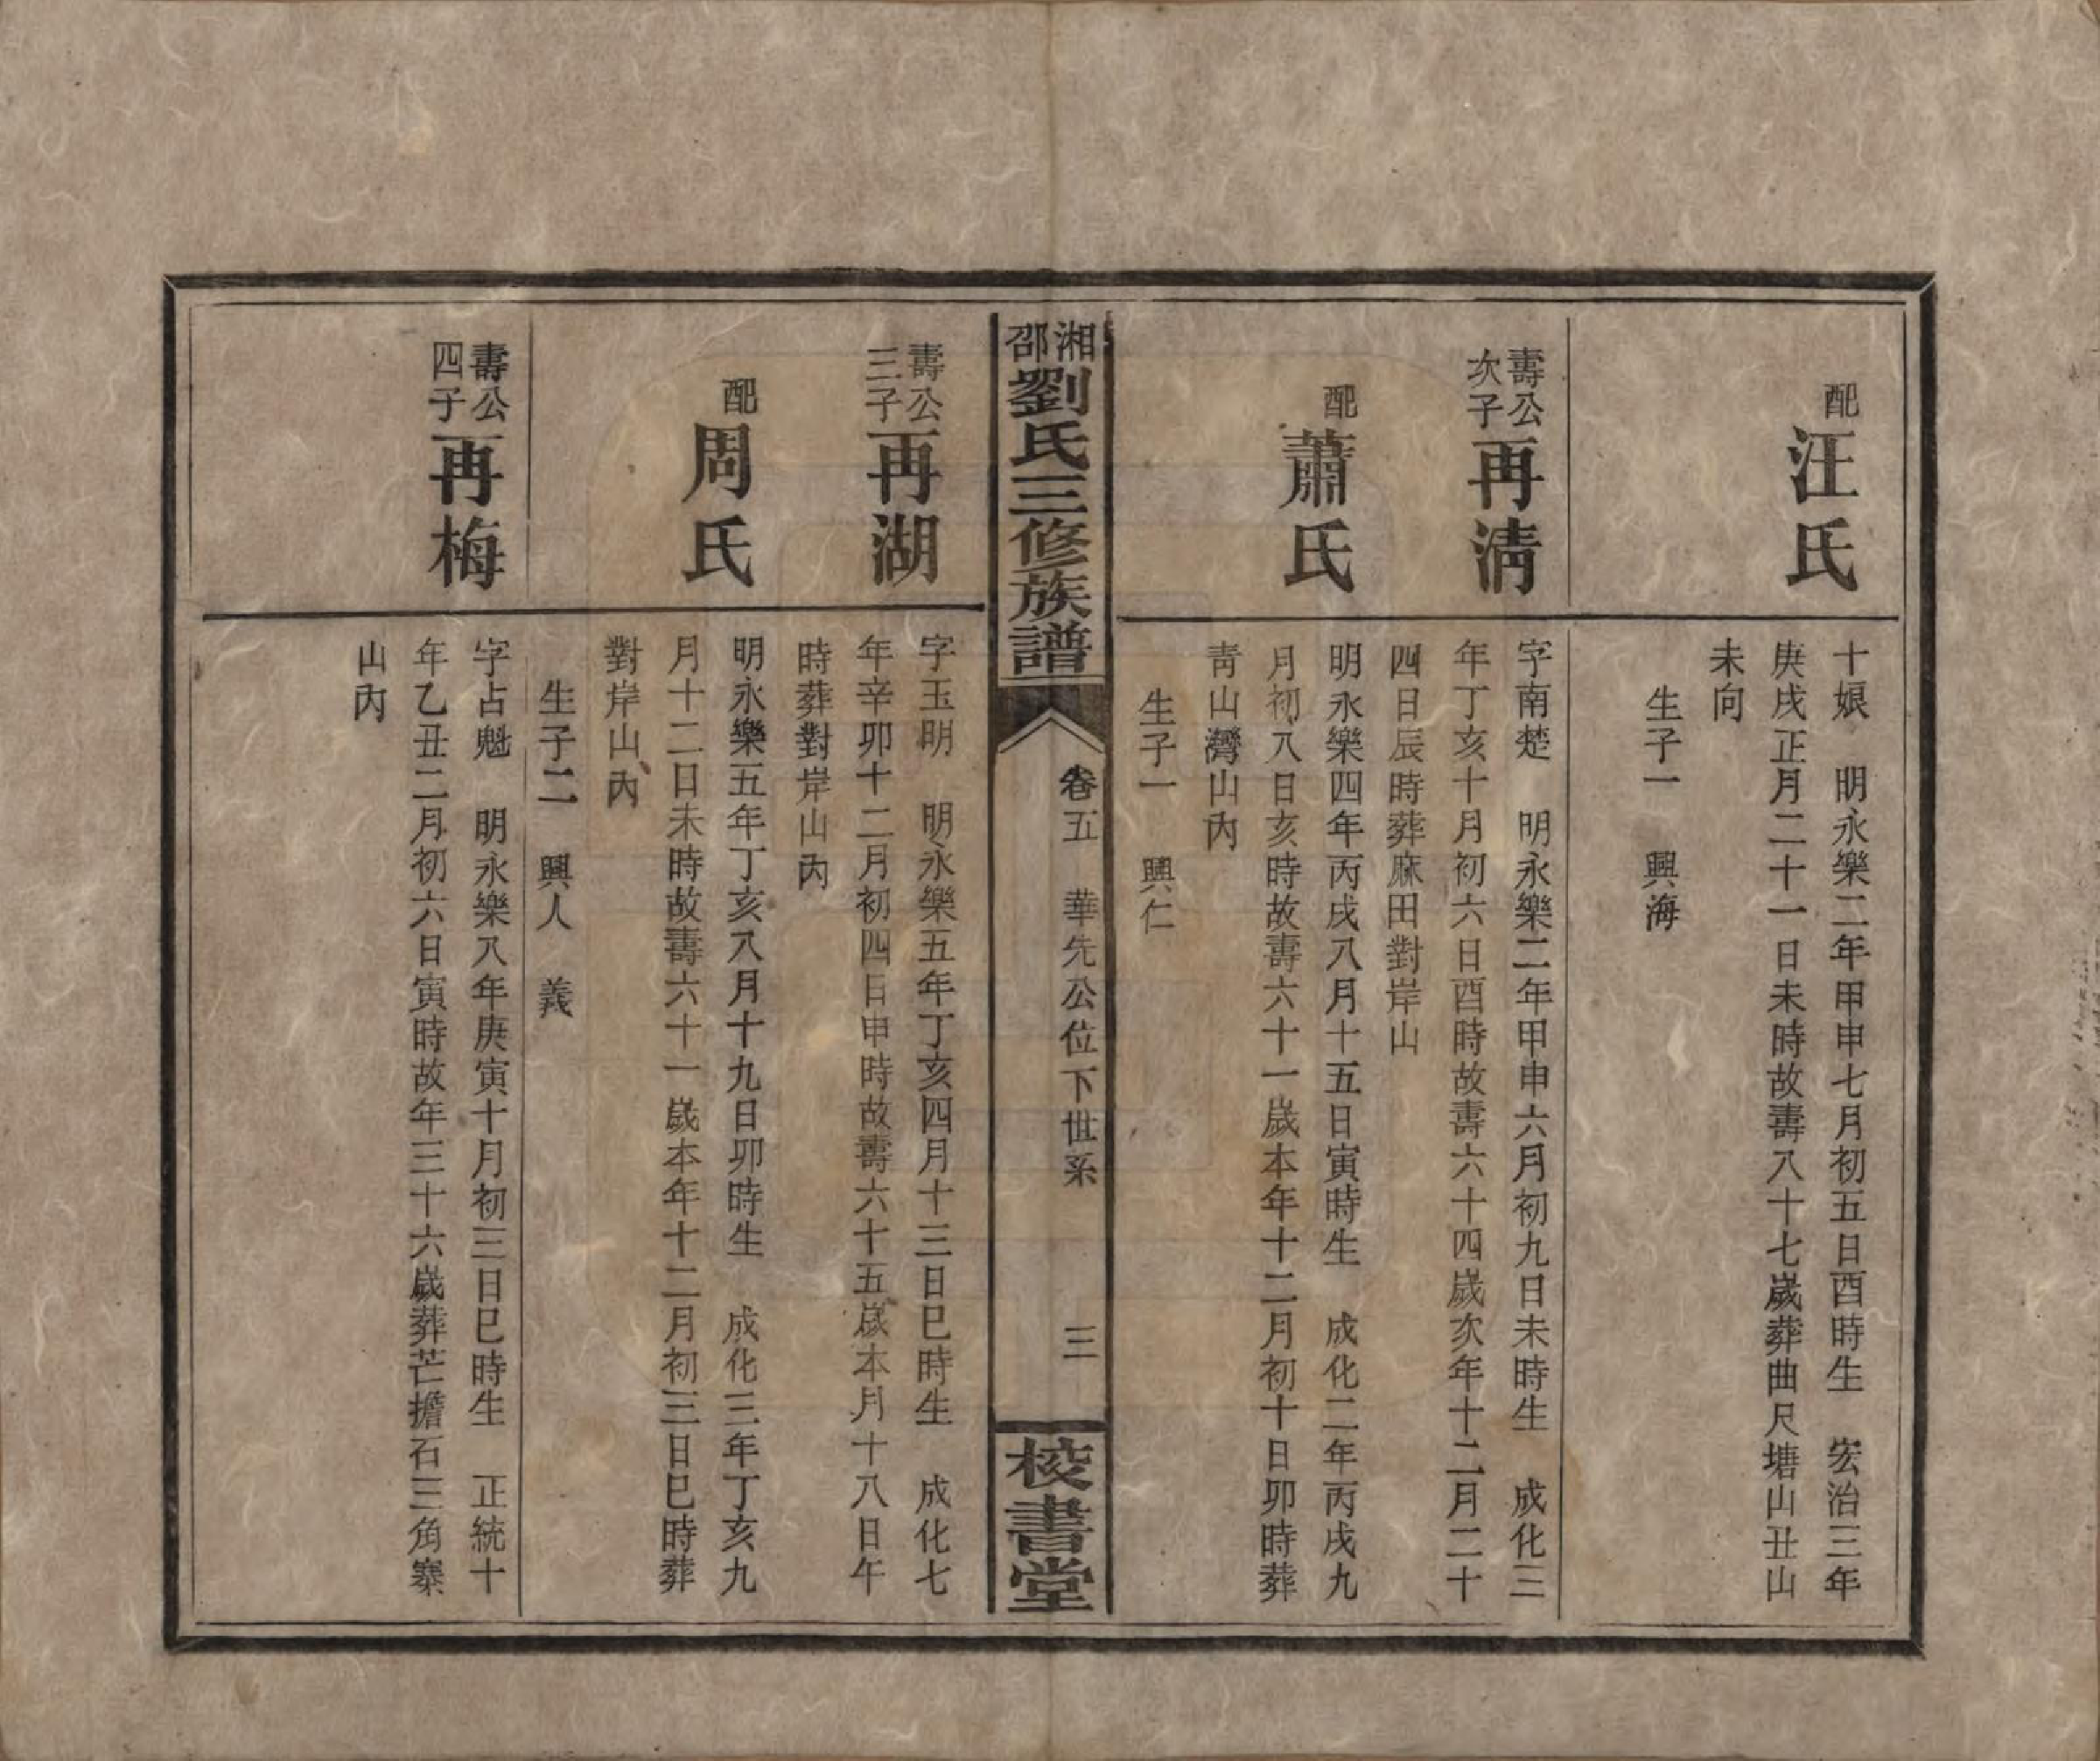 配
汪氏
十娘　明永樂二年甲申七月初五日酉時生　宏治三年
庚戌正月二十一日未時故壽八十七嵗葬曲尺塘山丑山
未向
生子一　興海
壽公
次子
再清
字南楚　明永樂二年甲申六月初九日未時生　成化三
年丁亥十月初六日酉時故壽六十四嵗次年十二月二十
四日辰時葬麻田對岸山
配
蕭氏
明永樂四年丙戌八月十五日寅時生　成化二年丙戌九
月初八日亥時故壽六十一嵗本年十二月初十日卯時葬
靑山灣山內
生子一　興仁
湘
邵
劉氏三修族譜
卷五　華先公位下世系　三
校書堂
壽公
三子
再湖
字玉明　明永樂五年丁亥四月十三日巳時生　成化七
年辛卯十二月初四日申時故壽六十五嵗本月十八日午
時葬對岸山內
配
周氏
明永樂五年丁亥八月十九日卯時生　成化三年丁亥九
月十二日未時故壽六十一嵗本年十二月初三日巳時葬
對岸山內
生子二　興人　義
壽公
四子
再梅
字占魁　明永樂八年庚寅十月初三日巳時生　正統十
年乙丑二月初六日寅時故年三十六嵗葬芒擔石三角寨
山內